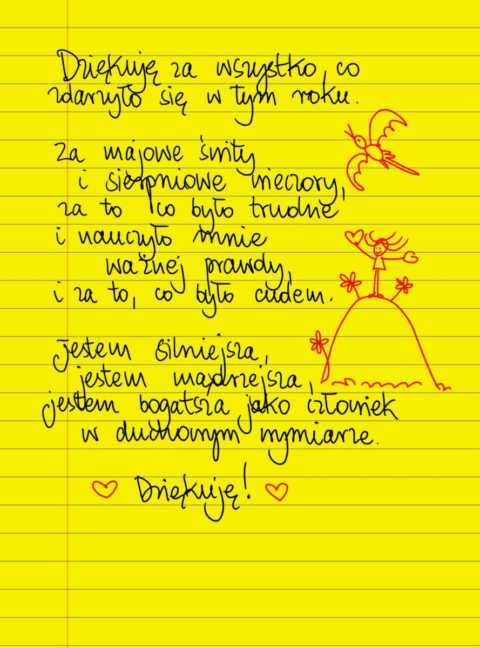 Dziękuję za wszystko, co
zdarzyło się w tym roku.
Za majowe świty
i sierpniowe wieczory,
za to co było trudne
i nauczyło mnie
ważnej prawdy,
i za to, co było cudem.
Jestem silniejsza,
jestem mądrzejsza,
jestem bogatsza jako człowiek
w duchowym wymiarze.
Dziękuję!